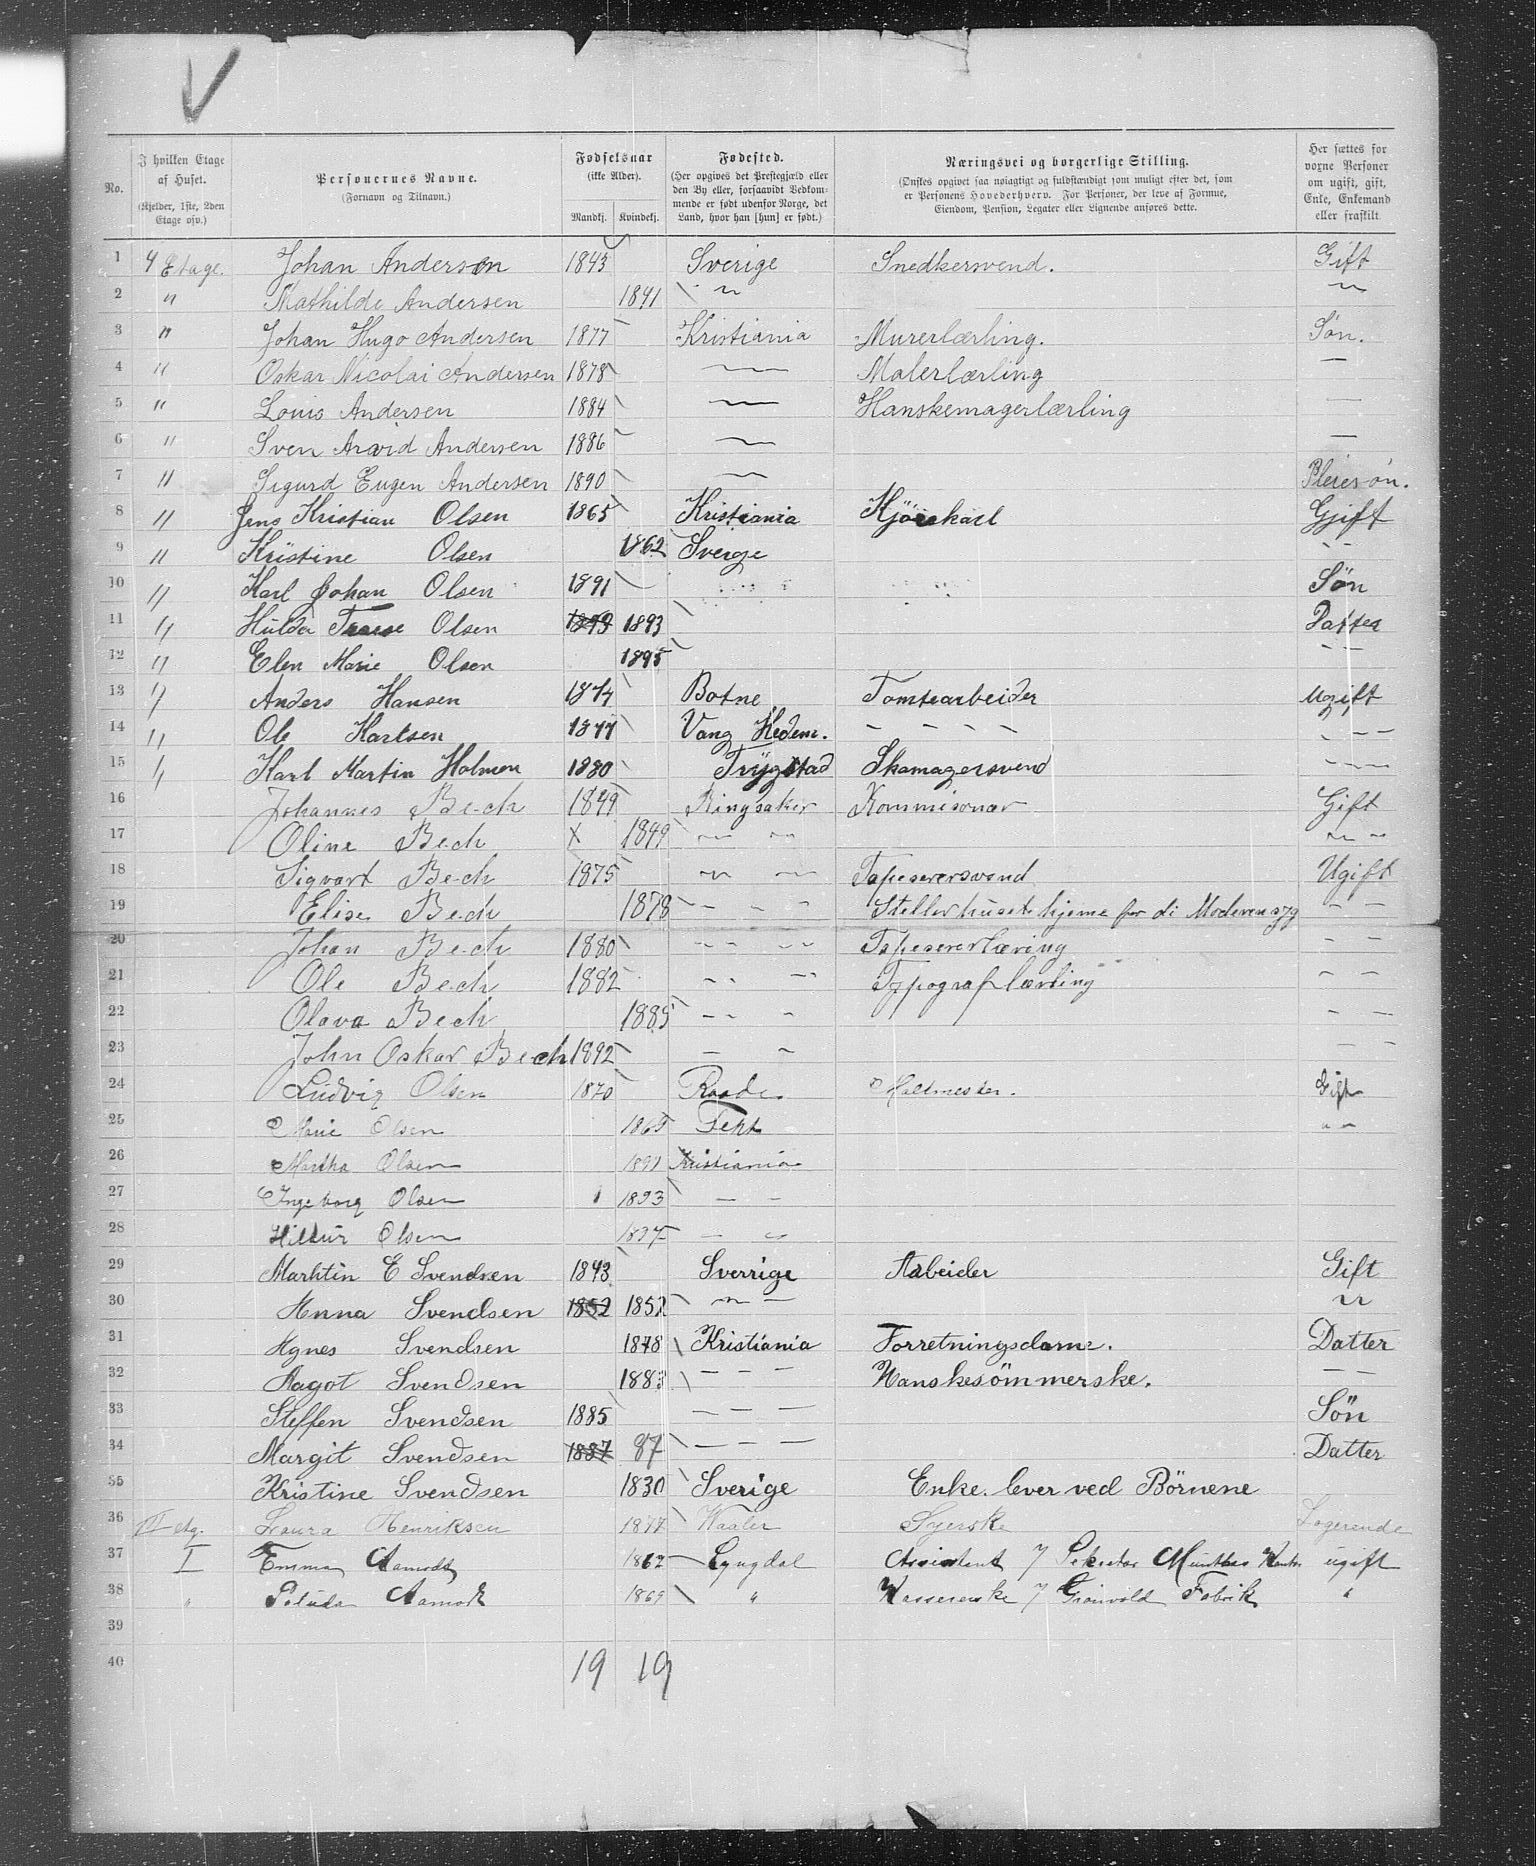 No. | I hvilken Etage af Huset. (Kjelder, 1ste, 2den Etage osv.) | Personernes Navne. (Fornavn og Tilnavn.) | Fødselsaar (ikke Alder). Mandkj. | Kvindekj. | Fødested. (Her opgives det Prestegjæld eller den By eller, forsaavidt Vedkommende er født udenfor Norge, det Land, hvor han [hun] er født.) | Næringsvei og borgerlige Stilling. (Ønskes opgivet saa nøiagtigt og fuldstændigt som muligt efter det, som er Personens Hovederhverv. For Personer, der leve af Formue, Eiendom, Pension, Legater eller Lignende anføres dette. | Her sættes for voxne Personer om ugift, gift, Enke, Enkemand eller fraskilt
1 4 Etage. Johan Andersen 1843 Sverige Snedkersvend. Gift
2 " Mathilde Andersen 1841 " "
3 " Johan Hugo Andersen 1877 Kristiania Murerlærling. Søn.
4 " Oskar Nicolai Andersen 1878 — Malerlærling —
5 " Louis Andersen 1884 — Hanskemagerlærling —
6 " Sven Arvid Andersen 1886 — —
7 " Sigurd Eugen Andersen 1890 — Pleiesøn.
8 " Jens Kristian Olsen 1865 Kristiania Kjörekarl Gjift
9 " Kristine Olsen 1862 Sverge - -
10 " Karl Johan Olsen 1891 Sön
11 " Hulda Olsen 1893 1893 Datter
12 " Elen Marie Olsen 1895 - -
13 " Anders Hansen 1874 Botne Tomtearbeider Ugift
14 " Ole Karlsen 1877 Vang Hedem. — — — — - - -
15 " Karl Martin Holmen 1880 Trygstad Skomagersvend - - -
16 Johannes Bech 1849 Ringsaker Kommisonær Gift
17 Oline Bech X 1849 " " " "
18 Sigvart Bech 1875 " " Tapeserersvend Ugift
19 Elise Bech 1878 - - - Steller huset hjeme for di Moderen syg - -
20 Johan Bech 1880 - - - - Tapesererlæring - -
21 Ole Bech 1882 - - - Typograflærling - -
22 Olava Bech 1885 - - - - -
23 John Oskar Bech 1892 - - - -
24 Ludvig Olsen 1870 Raade Maltmester. Gift
25 Marie Olsen 1865 Feht " "
26 Martha Olsen 1891 Kristiania
27 Ingeborg Olsen 1893 — —
28 Olsen 1897 — —
29 Marhtin E Svendsen 1843 Sverrige Arbeider Gift
30 Anna Svendsen 1852 1852 " — "
31 Agnes Svendsen 1878 Kristiania Forretningsdame. Datter
32 Aagot Svendsen 1883 — — — Hanskesömmerske. —
33 Steffen Svendsen 1885 — — — Sön
34 Margit Svendsen 1887 87 — — — Datter
35 Kristine Svendsen 1830 Sverige Enke. lever ved Börnene
36 II etg. Laura Henriksen 1877 Vaaler Syerske Logerende
37 I Emma Aamodt 1862 Lyngdal Assistent / Sekretær Munthes Kontor ugift
38 " Aamodt 1869 " Kassererske / Grönvold Fabrik "
39
40 19 19